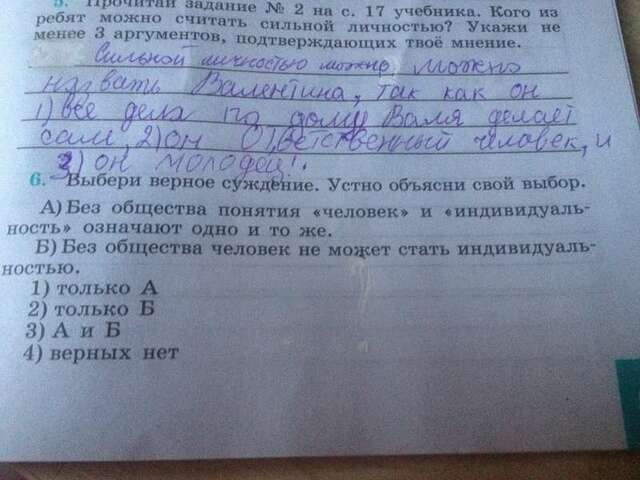 5. Прочитай задание № 2 на с. 17 учебника. Кого из
ребят можно считать сильной личностью? Укажи не
менее 3 аргументов, подтверждающих твоё мнение.
Сильной личностью можно, можно
назвать Валентина, так как он
1) все дела по дому Валя делает
сам, 2) он Ответственный человек, и
3) он молодец!.
6. Выбери верное суждение. Устно объясни свой выбор.
А) Без общества понятия «человек» и «индивидуаль-
ность» означают одно и то же.
Б) Без общества человек не может стать индивидуаль-
ностью.
1) только А
2) только Б
3) А и Б
4) верных нет